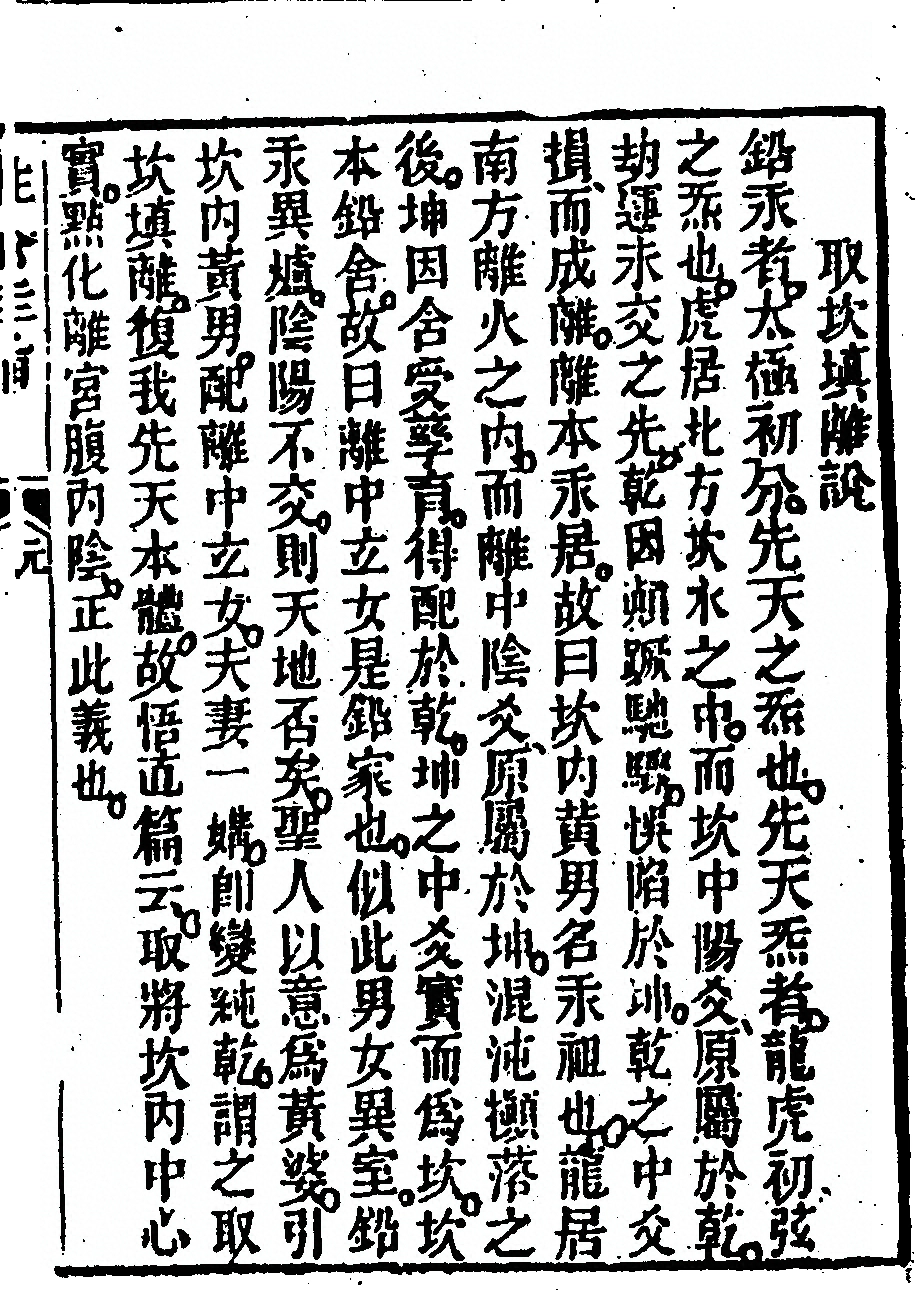 取坎填離說
鉛汞者。太極初分。先天之炁也。先天炁者。龍虎初、弦
之炁也。虎居北方坎水之中。而坎中陽爻、原屬於乾。
劫運未交之先。乾因顛蹶馳驟。悞陷於坤。乾之中爻
損、而成離。離本汞居。故曰坎内黃男名汞祖也。龍居
南方離火之内。而離中陰爻、原屬於坤。混沌顛落之
後。坤因含受孳育。得配於乾。坤之中爻實而爲坎。坎
本鉛舍。故曰離中立女是鉛家也。似此男女異室。鉛
汞異爐。陰陽不交。則天地否矣。聖人以意爲黃婆。引
坎内黃男。配離中立女。夫妻一媾。卽變純乾。謂之取
坎填離。復我先天本體。故悟眞篇云。取將坎内中心
實。點化離宮腹内陰。正此義也。
元